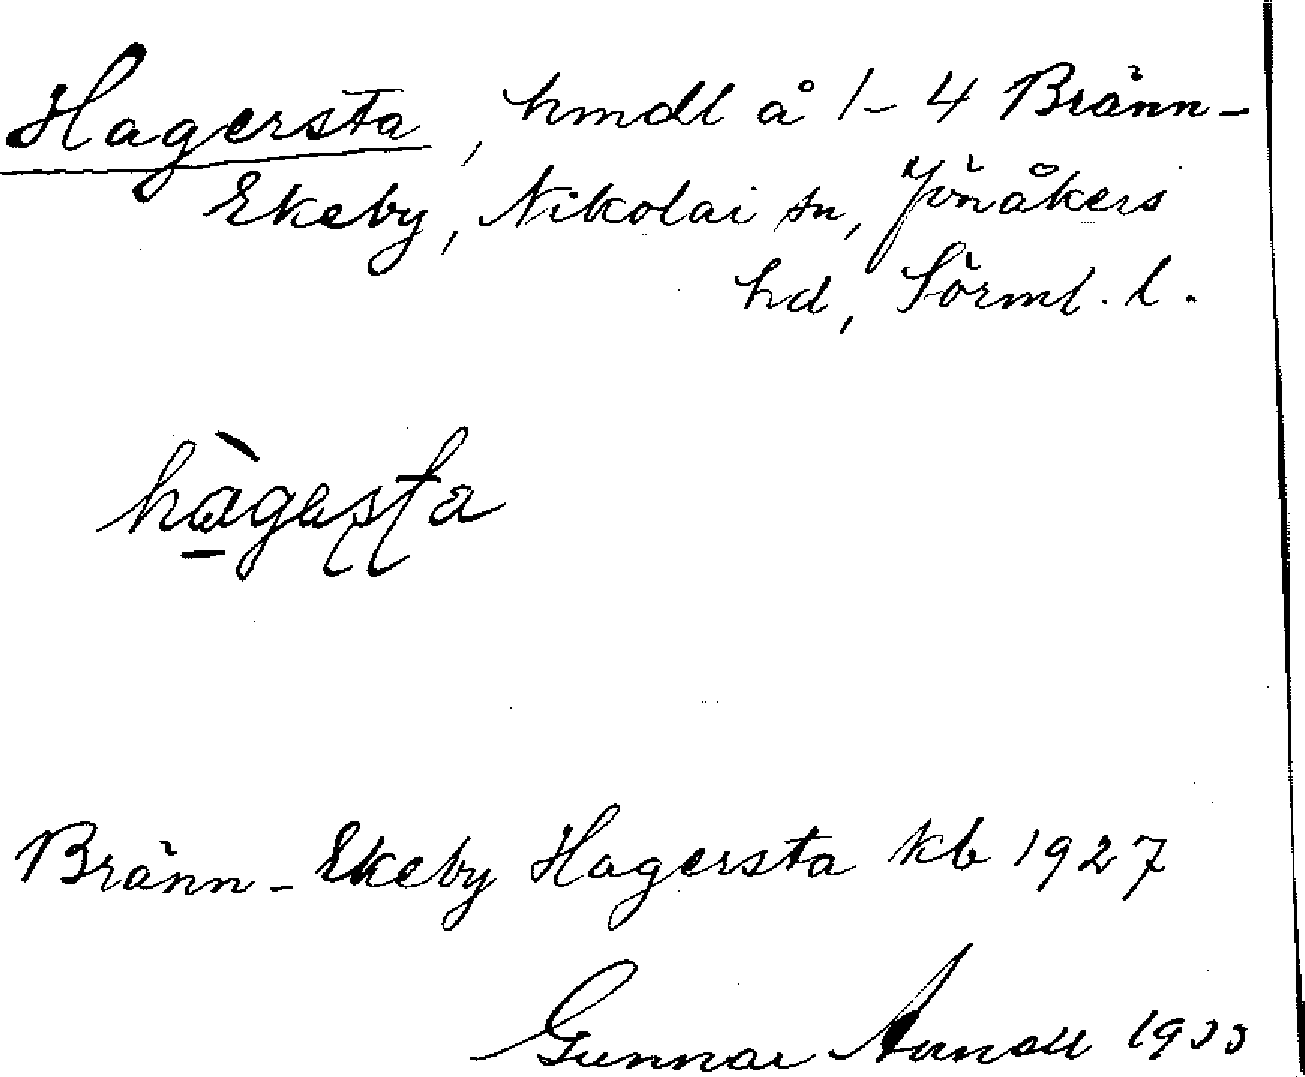 Hagersta, hmdl å 1-4 Bränn-
Ekeby, Nikolai sn, Jönåkers
hd, Sörml. l.
hàgesta
Bränn-Ekeby Hagersta kb 1927
Gunnar 1933